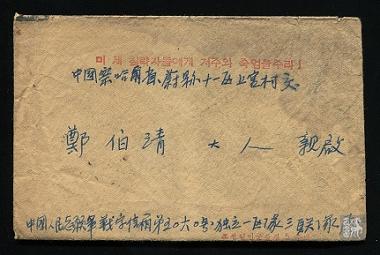 미제 침략자들에게 저주와 죽엄을 주라!
中國察哈爾省蔚縣十一区上宮村交
鄭伯靖 大人 親啟
中國人民志願軍戰字信箱第五〇六〇号独立一区隊三联隊